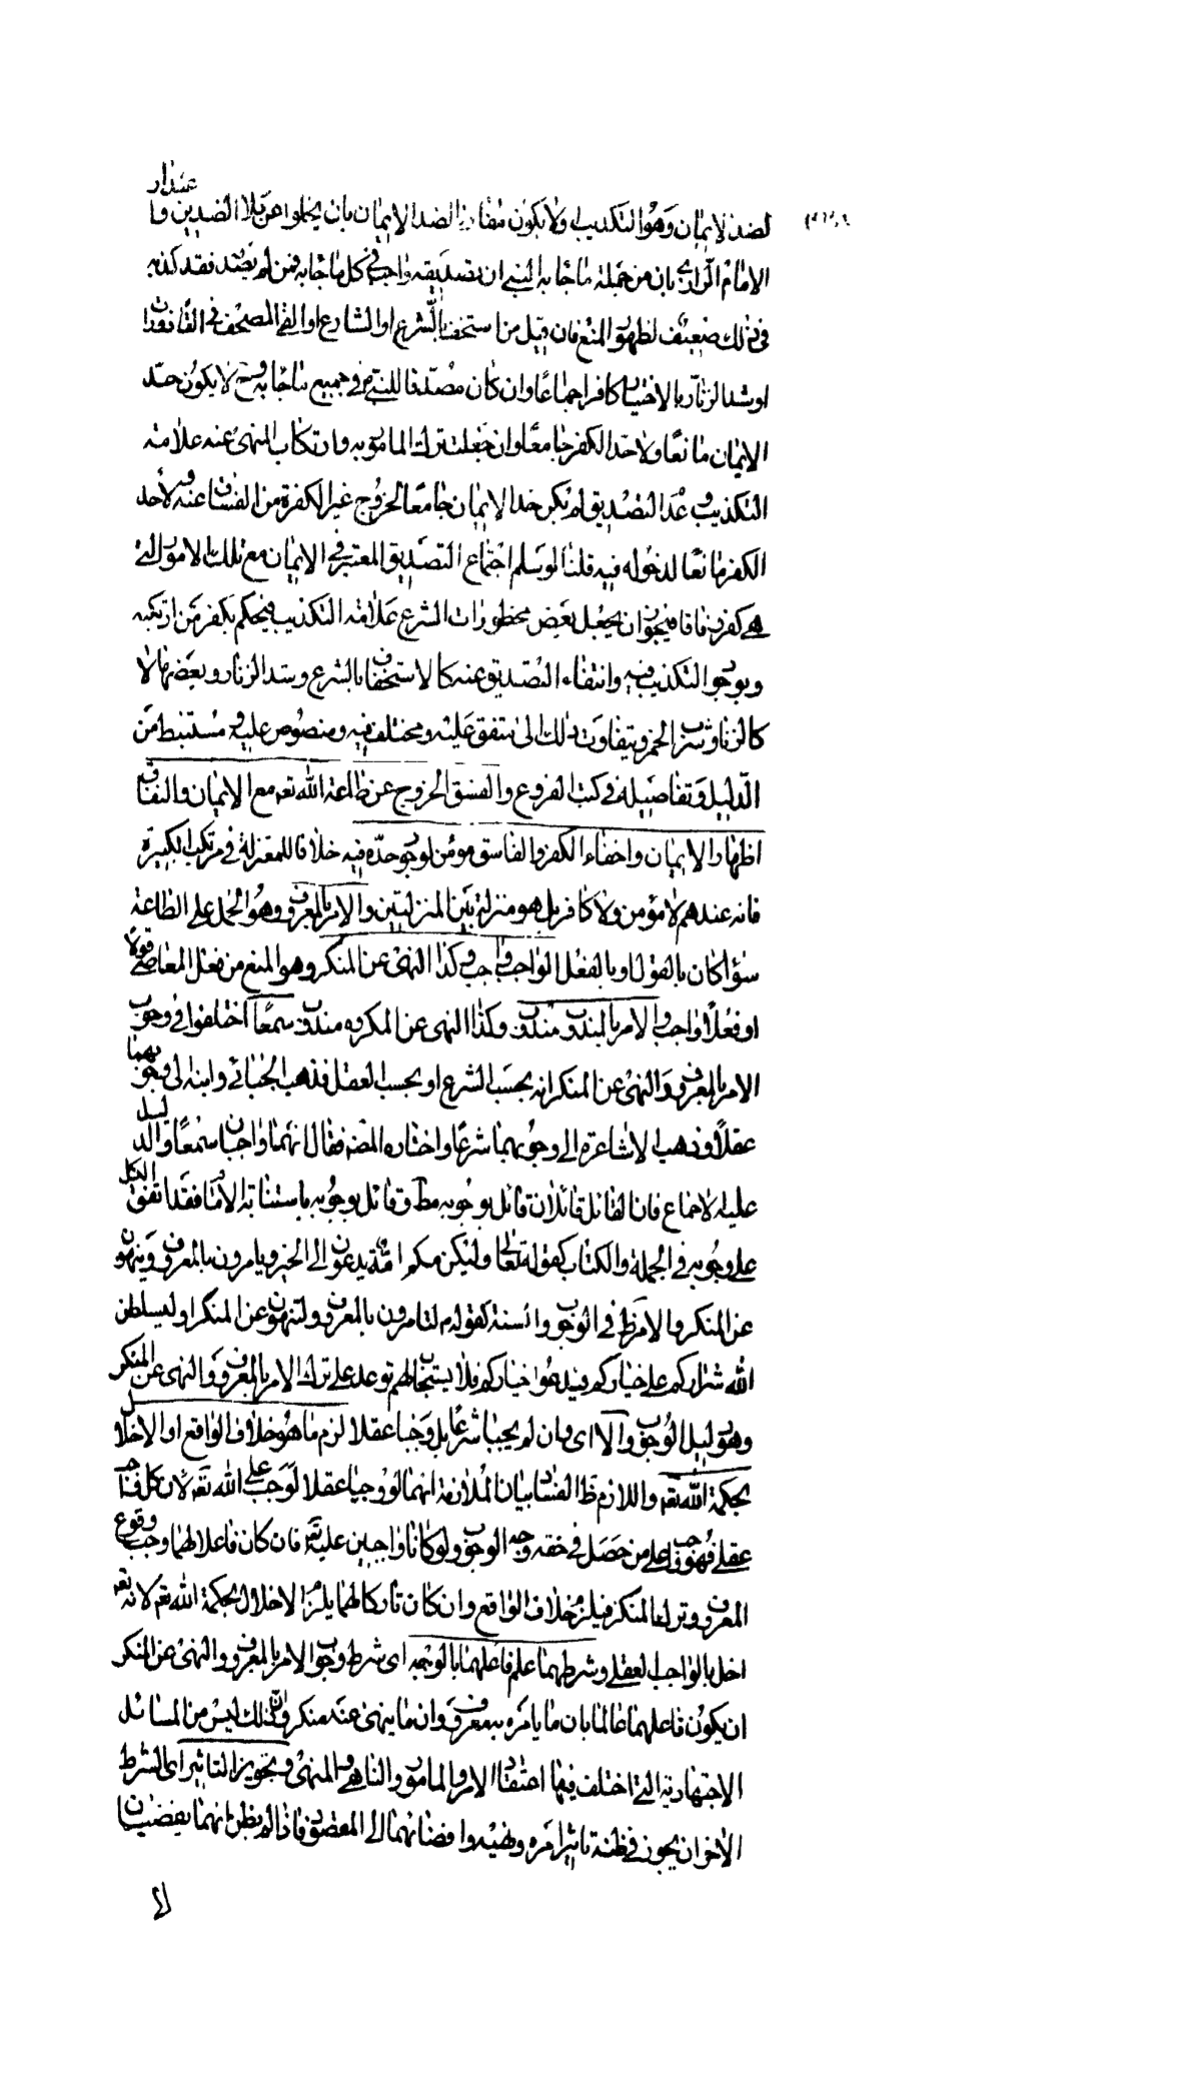 لضد الايمان وهو التكذيب ولا يكون مقارنا لضد الايمان بان يخلوا عن كلا الضدين و اعتذار
الامام الرازي بان من جملة ما جاء به النبي ان تصديقه واجب في كل ما جاء به فمن لم يصدقه فقد كذبه
في ذلك ضعيف لظهور المنع فان قيل من استخف بالشرع او الشارع او القى المصحف في القاذورات
او شد الزنار بالاختيار كافر اجماعا وان كان مصدقا للنبي ص في جميع ما جاء به وح لا يكون حد
الايمان مانعا ولا حد الكفر جامعا وان جعلت ترك المامور به وارتكاب المنهى عنه علامة
التكذيب وعدم التصديق لم يكن حد الايمان جامعا لخروج غير الكفرة من الفساق عنه ولا حد
الكفر مانعا لدخوله فيه قلنا لو سلم اجتماع التصديق المعتبر في الايمان مع تلك الامور التي
هي كفر وفاقا فيجوز ان يجعل بعض محظورات الشرع علامة التكذيب فيحكم بكفر من ارتكبه
وبوجود التكذيب فيه وانتفاء التصديق عنه كالاستخفاف بالشرع وشد الزنار وبعضها لا
كالزنا وشرب الخمر ويتفاوت ذلك الى متفق عليه ومختلف فيه ومنصوص عليه ومستنبط من
الدليل وتفاصيله في كتب الفروع والفسق الخروج عن طاعة الله تعه مع الايمان والنفاق
اظهار الايمان واخفاء الكفر والفاسق مومن لوجود حده فيه خلافا للمعتزلة في مرتكب الكبيرة
فانه عندهم لا مؤمن ولا كافر بل هو منزلة بين المنزلتين والامر بالمعروف وهو الحمل على الطاعة
سواء كان بالقول او بالفعل الواجب واجب وكذا النهى عن المنكر وهو المنع من فعل المعاصي قولا
او فعلا واجب والامر بالمندوب مندوب وكذا النهى عن المكروه مندوب سمعا اختلفوا في وجوب
الامر بالمعروف والنهى عن المنكر انه بحسب الشرع او بحسب العقل فذهب الجبائي وابنه الى وجوبهما
عقلا وذهب الاشاعرة الى وجوبهما شرعا واختاره المصه فقال انهما واجبان سمعا والدليل
عليه الاجماع فان القائل قائلان قائل بوجوبه مط وقائل بوجوبه باستنابة الامام فقد اتفق الكل
على وجوبه في الجملة والكتاب كقوله تعالى ولتكن منكم امة يدعون الى الخير ويامرون بالمعروف وينهون
عن المنكر والامر ظ في الوجوب والسنة كقوله م لتامرون بالمعروف ولتنهون عن المنكر او ليسلطن
الله شراركم على خياركم فيدعوا خياركم فلا يستجاب لهم توعد على ترك الامر بالمعروف والنهى عن المنكر
وهو دليل الوجوب والا اى وان لم يجبا شرعا بل وجبا عقلا لزم ما هو خلاف الواقع او الاخلال
بحكمة الله تعه واللازم ظ الفساد بيان الملازمة انهما لو وجبا عقلا لوجب على الله تعه لان كل واجب
عقلي فهو واجب على من حصل في حقه وجه الوجوب ولو كانا واجبين عليه تعه فان كان فاعلا لهما وجب وقوع
المعروف وترك المنكر فيلزم خلاف الواقع وان كان تاركا لهما يلزم الاخلال بحكمة الله تعه لانه تعه
اخل بالواجب العقلي وشرطهما علم فاعلهما بالوجه اى شرط وجوب الامر بالمعروف والنهى عن المنكر
ان يكون فاعلهما عالما بان ما يامره به معروف وان ما ينهى عنه منكر وان ذلك ليس من المسائل
الاجتهادية التي اختلف فيها اعتقاد الامر والمامور والناهي والمنهى وتجويز التاثير اى الشرط
الاخر ان يجوز في ظنه تاثير امره ونهيه وافضائهما الى المقصود فاذا لم يظن انهما يفضيان